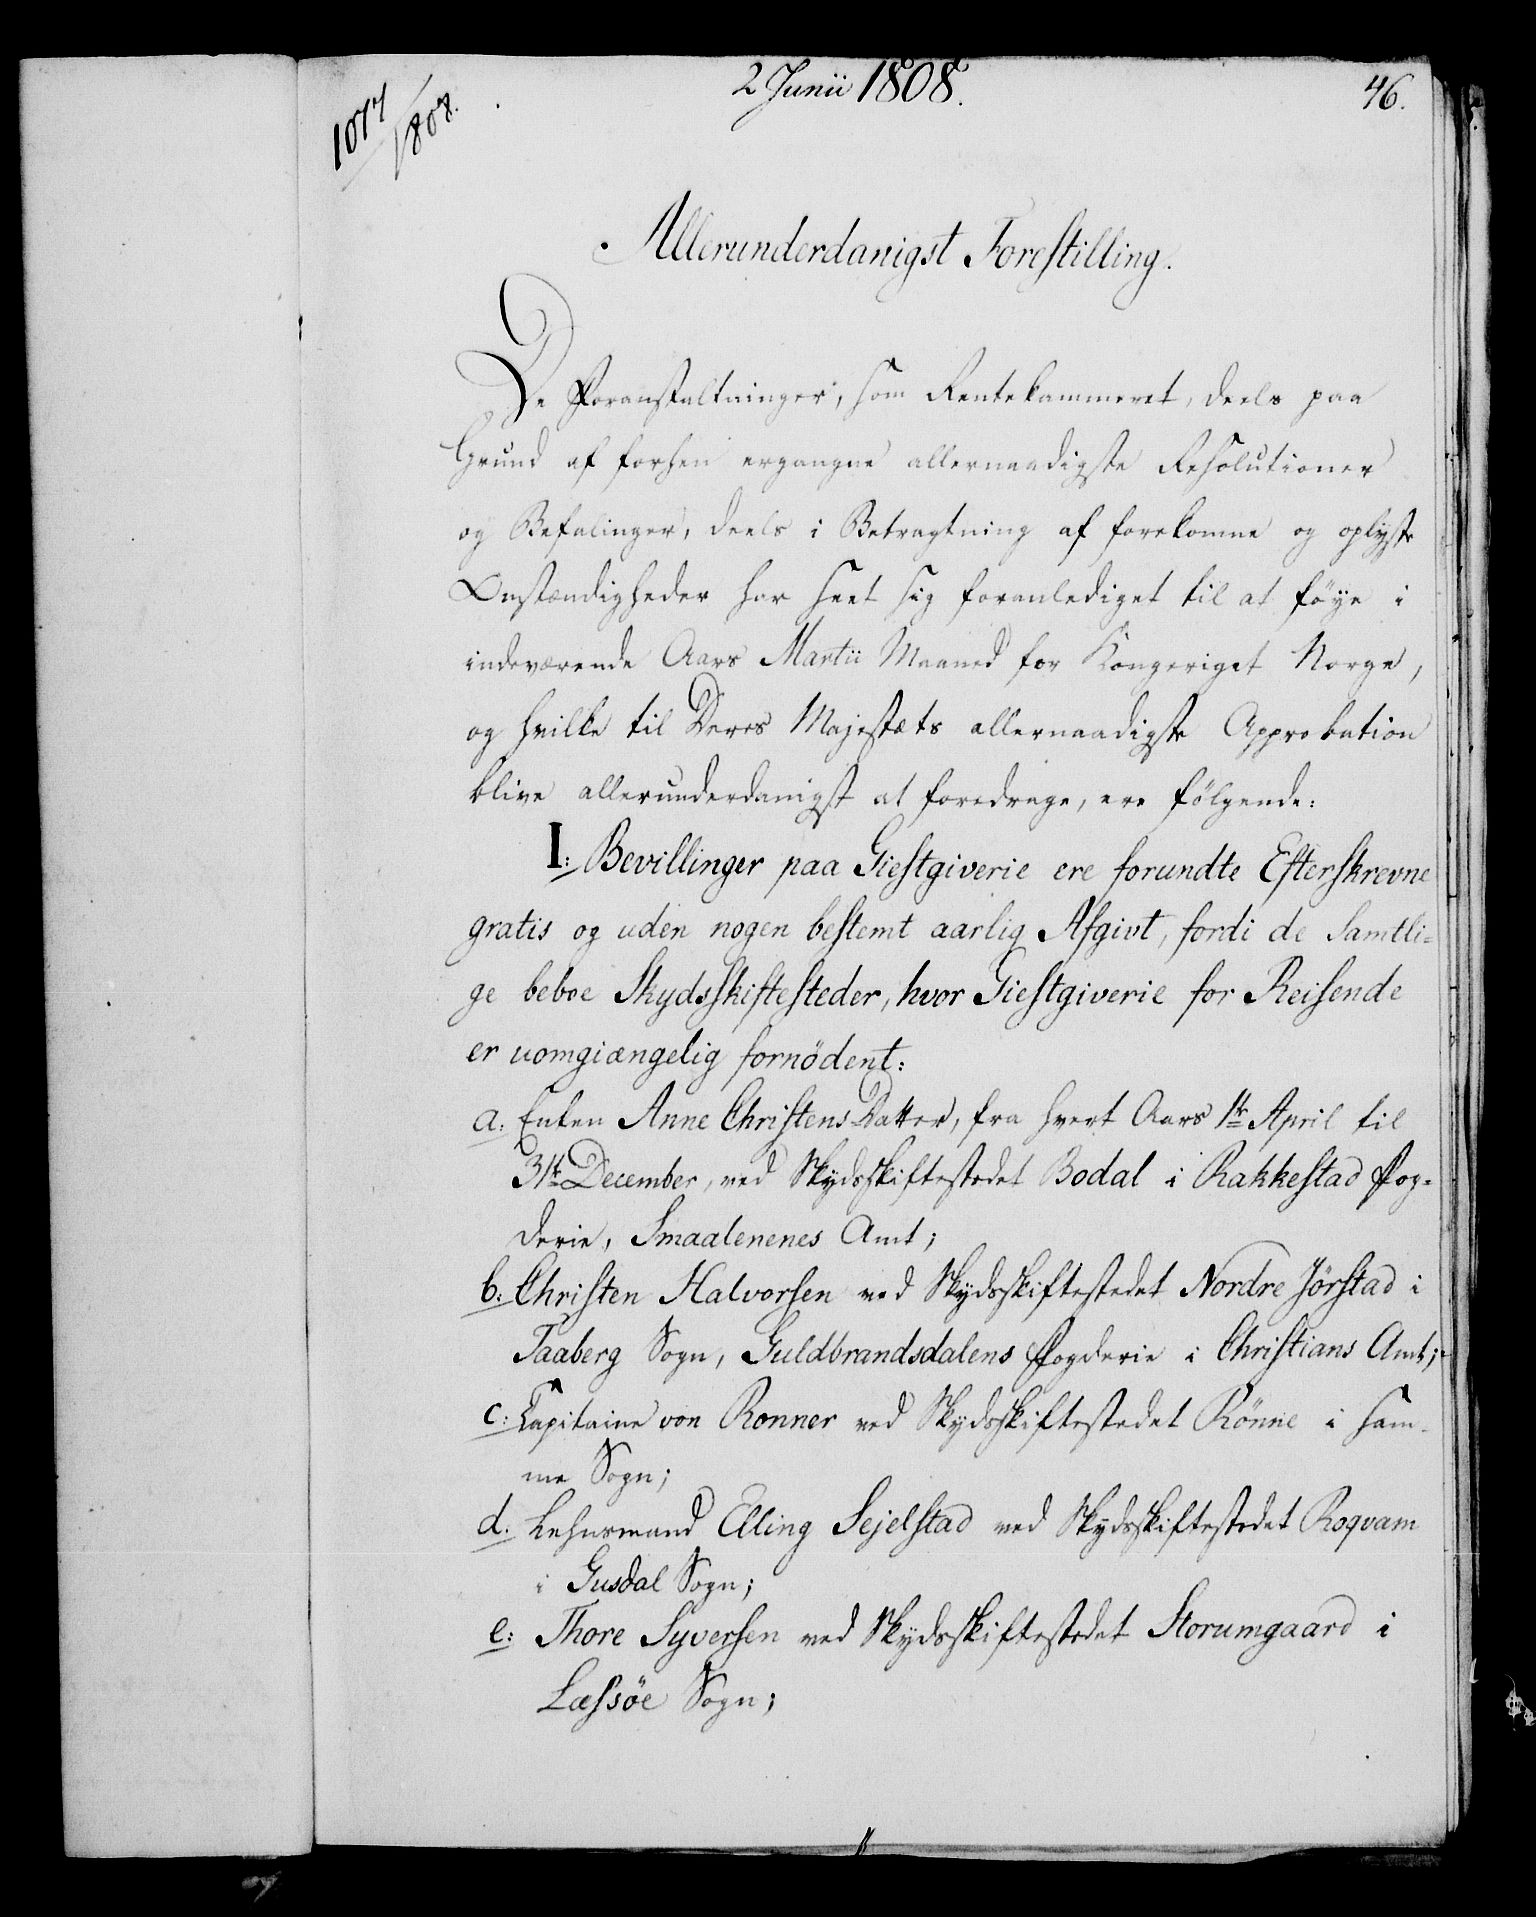 2 Junii 1808.
46.
1077
1808.
Allerunderdanigst Forestilling.
De Foranstaltninger, som Rentekammeret, deels paa
Grund af forhen ergangne allernaadigste Resolutioner
og Befalinger, deels i Betragtning af forekomne og oplyste
Omstændigheder har seet sig foranlediget til at föye i
indeværende Aars Martii Maaned for Kongeriget Norge,
og hvilke til Deres Majestæts allernaadigste Approbation
blive allerunderdanigst at foredrage, ere fölgende:
I: Bevillinger paa Giestgiverie ere forundte Efterskrevne
gratis og uden nogen bestemt aarlig Afgivt, fordi de samtli=
ge beboe Skydsskiftesteder, hvor Giestgiverie for Reisende
er uomgiængelig fornödent:
a: Enken Anne Christens Datter, fra hvert Aars 1te April til
31te December, ved Skydsskiftestedet Bodal i Rakkestad Fog=
derie, Smaalenenes Amt;
b: Christen Halvorsen ved Skydsskiftestedet Nordre Jörstad i
Faaberg Sogn, Guldbrandsdalens Fogderie i Christians Amt;
c: Capitaine von Ronner ved Skydsskiftestedet Rönne i sam-
me Sogn;
d. Lehnsmand Elling Sejelstad ved Skydsskiftestedet Roqvam
i Gusdal Sogn;
e: Thore Syversen ved Skydsskiftestedet Storumgaard i
Læssöe Sogn;